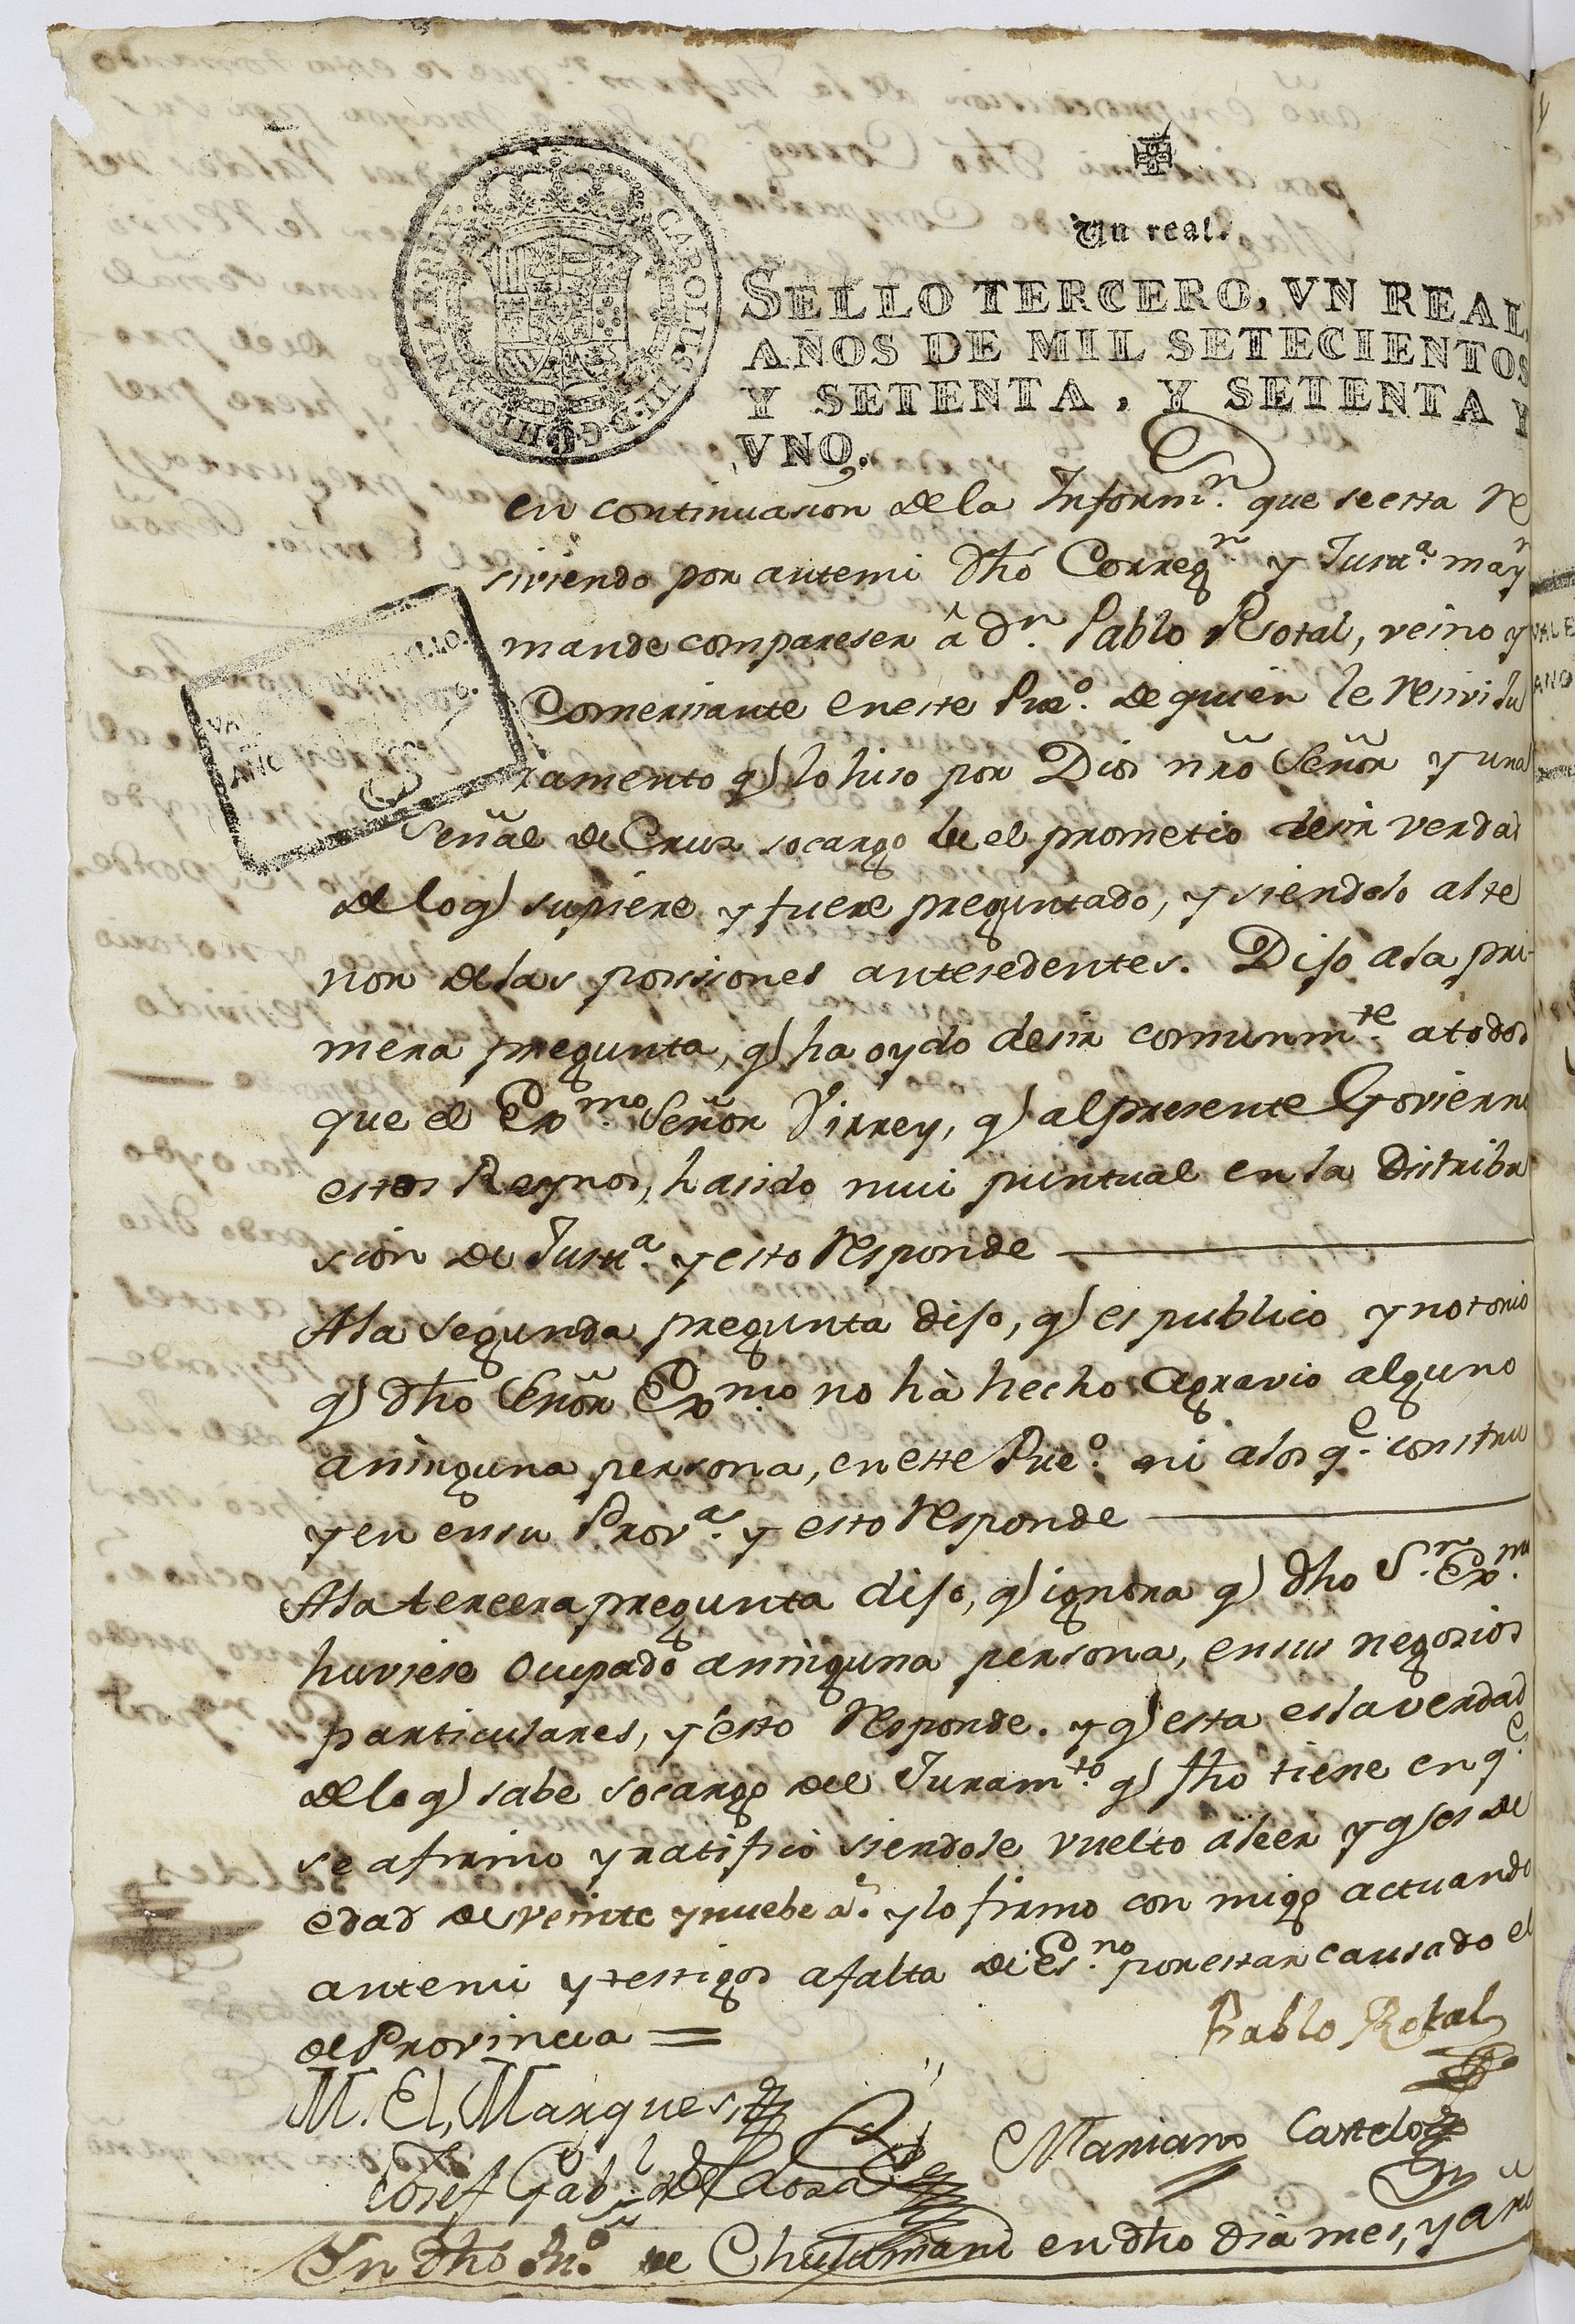 Un real.
SELLO TERCERO, VN REAL,
AÑOS DE MIL SETECIENTOS
Y SETENTA, Y SETENTA Y
VNO.
CAROLUS III D G HISPANIAR REX
en continuasion de la Informn. que se esta re
siviendo por antemi dho Corregr. y Justa. mayr
mande compareser â Dn. Pablo Rotal, vesino y
Comersiante en este Pueo. de quien le resivi Ju
ramento q) lo hiso por Dios nrõ Señor y una
Señal de Cruz socargo de el prometio desir verdad
de lo q) supiere y fuere preguntado, y siendolo al te
nor de las possiones antesedentes. Dijo a la pri-
mera pregunta, q) ha oydo desir comunmte. a todos
que el Exmo. Señor Virrey, q) al presente Govierna
estos Reynos, ha sido mui puntual en la distribu
sion de Justa. y esto responde
A la segunda pregunta dijo, q) es publico y notorio
q) dho Señor Exmo. no hà hecho Agravio alguno
a ninguna persona, en este Pueo. ni a los qe. constru
yen en su Prova. y esto responde
A la tercera pregunta dijo, q) ignora q) dho Sr. Exmo.
huviese ocupado a ninguna persona, en sus negosios
particulares, y esto responde. y q) esta es la verdad
de lo q) sabe socargo del Juramto. q) fho tiene en qe.
se afirmo y ratificò siendole vuelto a leer y q) es de
edad de veinte y nuebe as. y lo firmo con migo actuando
antemi y testigos a falta de Esno. por estar causado el
de Provincia =
Pablo Rotal
M. El, Marques
Mariano Castelo
Josef Gabl. de
En dho Po. de Chulumani en dho dia mes, y año